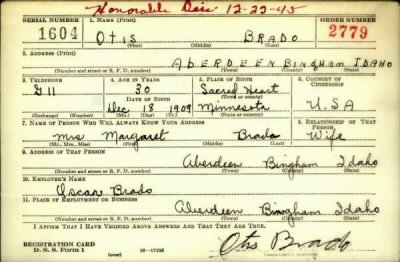 Honorable Dis. 12-22-45
SERIAL NUMBER 1. NAME (Print) ORDER NUMBER
1604 OTIS BRADO 2779
(First) (Middle) (Last)
2. ADDRESS (Print)
ABERDEEN BINGHAM IDAHO
(Number and street or R. F. D. number) (Town) (County) (State)
3. TELEPHONE 4. AGE IN YEARS 5. PLACE OF BIRTH 6. COUNTRY OF CITIZENSHIP
30 Sacred Heart
(Town or county)
DATE OF BIRTH
Dec 18 1909 Minnesota U.S.A
(Exchange) (Number) (Mo.) (Day) (Yr.) (State or country)
7. NAME OF PERSON WHO WILL ALWAYS KNOW YOUR ADDRESS 8. RELATIONSHIP OF THAT PERSON
Mrs Margaret Brado Wife
(Mr., Mrs., Miss) (First) (Middle) (Last)
9. ADDRESS OF THAT PERSON
Aberdeen Bingham Idaho
(Number and street or R. F. D. number) (Town) (County) (State)
10. EMPLOYER'S NAME
Oscar Brado
11. PLACE OF EMPLOYMENT OR BUSINESS
Aberdeen Bingham Idaho
(Number and street or R. F. D. number) (Town) (County) (State)
I AFFIRM THAT I HAVE VERIFIED ABOVE ANSWERS AND THAT THEY ARE TRUE.
REGISTRATION CARD
D. S. S. Form 1
Otis Brado